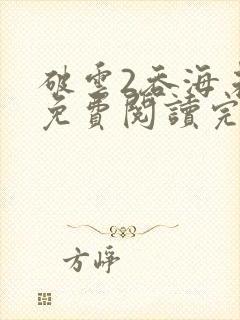 破雲2吞海
免費閱讀完
方崢